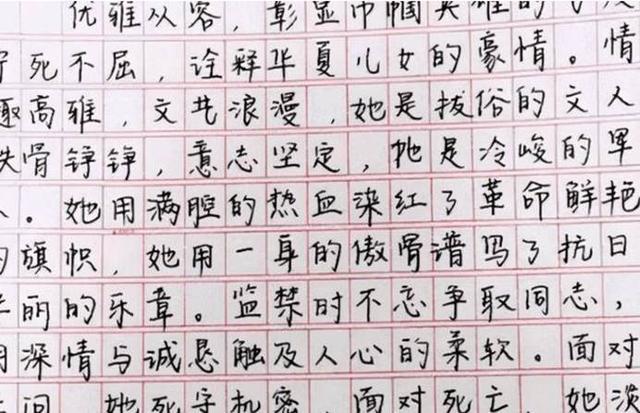 优雅从容,彰显巾帼英雄的
死不屈,诠释华夏儿女的豪情。情
趣高雅,文艺浪漫,她是拔俗的文人
铁骨铮铮,意志坚定,她是冷峻的军
人。她用满腔的热血染红了革命鲜艳
的旗帜,她用一身的傲骨谱写了抗日
丽的乐章。监禁时不忘争取同志,
用深情与诚恳触及人心的柔软。面对
问,她死守机密,面对死亡,她淡